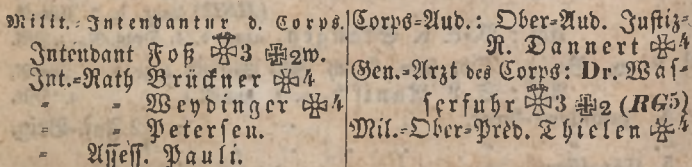 Milit.-Intendantur d. Corps.
Intendant Foß 3 2w.
Int.-Rath Brückner 4
" " Weydinger 4
" " Petersen.
" Assess. Pauli.
Corps-Aud.: Ober-Aud. Justiz-
R. Dannert 4
Gen.-Arzt des Corps: Dr. Was-
serfuhr 3 2 (RG5)
Mil.-Ober-Pred. Thielen 4